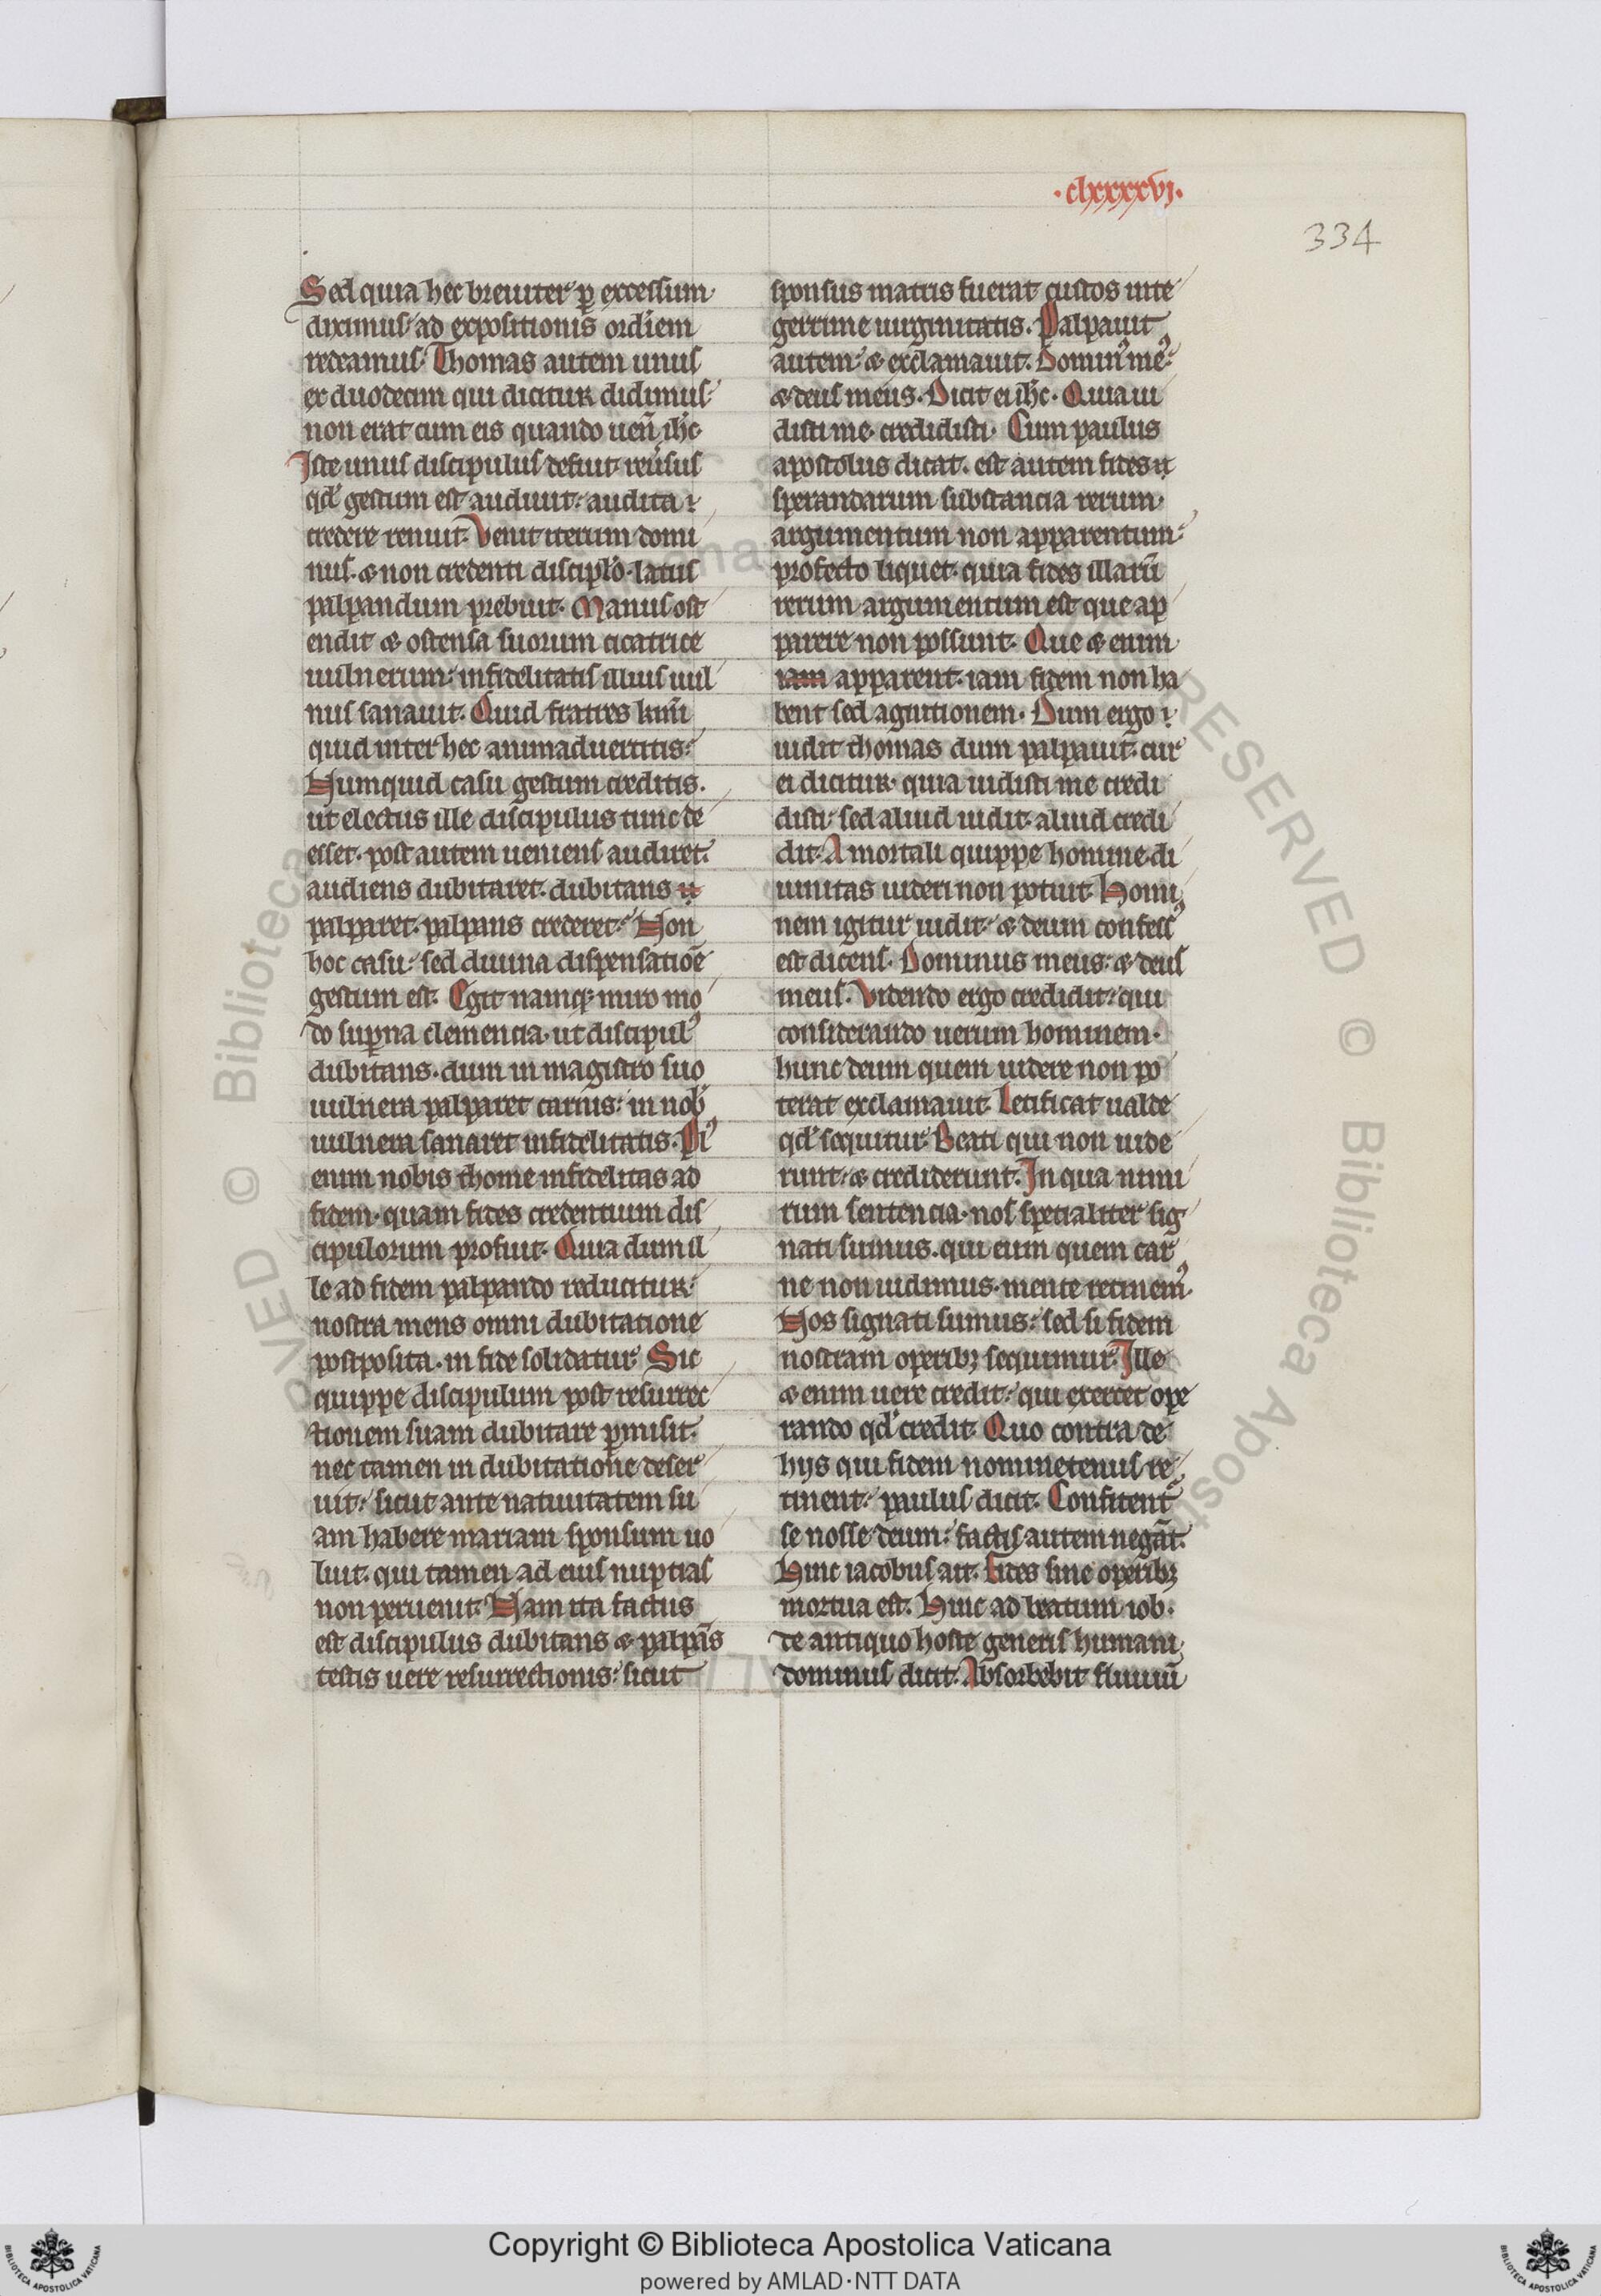 ·clxxxxvj·
334
Sed quia hec breuiter p̱ excessum·
diximus: ad expositionis ordinem
redeamus. Thomas autem unus
ex duodecim qui dicitur didimus:
non erat cum eis quando ueñ ih̄c·
Iste unus discipulus defuit reu̓sus
qd̓ gestum est audiuit: audita ⁊
credere renuit. Venit iterum domi
nus· & non credenti discipl̓o· latus
palpandum prebuit. Manus ost
endit & ostensa suorum cicatrice
uulnerum: infidelitatis illius uul
nus sanauit. Quid fratres kmī
quid inter hec animaduertitis:
Numquid casu gestum creditis.
ut electus ille discipulus tunc de
esset· post autem ueniens audiret.
audiens dubitaret. dubitans
palparet. palpans crederet: Non
hoc casu: sed diuina dispensatiōe
gestum est. Egit namq; miro mo
do sup̱na clemencia· ut discipul᾿
dubitans· dum in magistro suo
uulnera palparet carnis: in nob̓
uulnera sanaret infidelitatis. Pl᾿
enim nobis thome infidelitas ad
fidem· quam fides credentium dis
cipulorum profuit. Quia dum il
le ad fidem palpando reducitur:
nostra mens omni dubitatione
postposita· in fide solidatur. Sic
quippe discipulum post resurrec
tionem suam dubitare p̱misit.
nec tamen in dubitatione deser
uit: sicut ante natiuitatem su
am habere mariam sponsum uo
luit. qui tamen ad eius nuptias
non peruenit. Nam ita factus
est discipulus dubitans & palpās
testis uere resurrectionis: sicut
sponsus matris fuerat custos inte
gerrime uirginitatis. Palpauit
autem: & exclamauit. Domin᾿ me᾿:
& deus meus. Dicit ei ih̄c. Quia ui
disti me· credidisti. Cum paulus
apostolus dicat. est autem fides
sperandarum substancia rerum·
argumentum non apparentium:
profecto liquet· quia fides illarū
rerum argumentum est que ap
parere non possunt. Que & enim
iam apparent· iam fidem non ha
bent sed agnitionem. Dum ergo ⁊
uidit thomas dum palpauit· cur
ei dicitur· quia uidisti me credi
disti: sed aliud uidit· aliud credi
dit. A mortali quippe homine· di
uinitas uideri non potuit. Homi
nem igitur uidit: & deum confess᾿
est dicens. Dominus meus: & deus
meus. Videndo ergo credidit: qui
considerando uerum hominem·
hunc deum quem uidere non po
terat exclamauit. Letificat ualde
qd̓ sequitur. Beati qui non uide
runt: & crediderunt. In qua nimi
rum sentencia· nos specialiter sig
nati sumus. qui eum quem car
ne non uidimus· mente retinem᾿.
Nos signati sumus: sed si fidem
nostram operib; sequimur. Ille
& enim uere credit: qui exercet ope
rando qd̓ credit. Quo contra de
hys qui fidem nominetenus re
tinent: paulus dicit. Confitent᾿
se nosse deum: factis autem negāt.
Hinc iacobus ait. Fides sine operib;
mortua est. Hinc ad beatum iob·
de antiquo hoste generis humani
dominus dicit. Absorbebit fluuiū
© Biblioteca Apostolica Vaticana
Copyright © Biblioteca Apostolica Vaticana
powered by AMLAD·NTT DATA